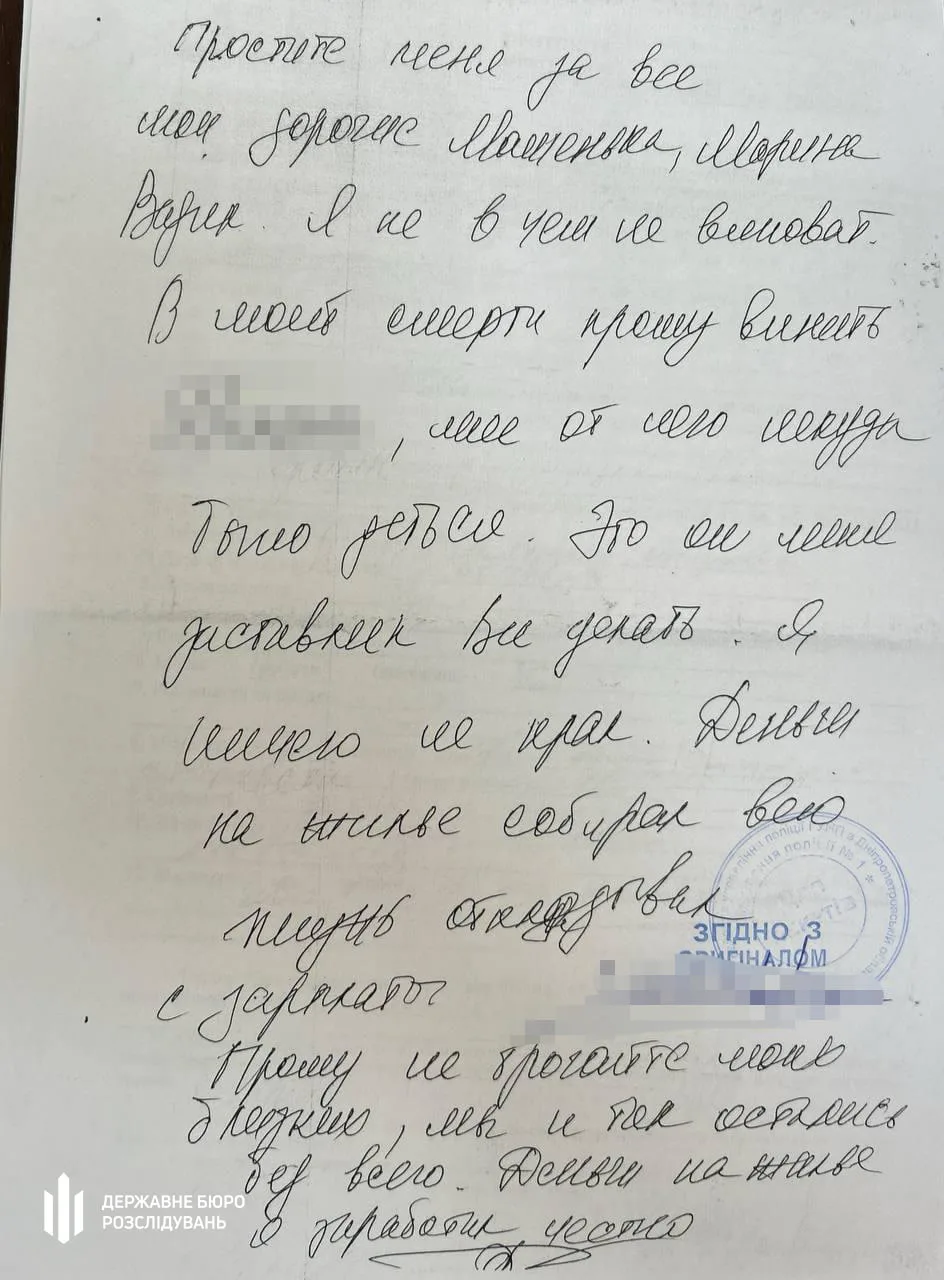 Простите меня за все
мои дорогие Машенька, Марина
Вадик. Я не в чем не виноват.
В моей смерти прошу винить
, мне от него некуда
было деться. Это он меня
заставлял Все делать. Я
ничего не крал. Деньги
на жилье собирал всю
жизнь откладывал
с зарплаты
Прошу не трогайте моих
близких, мы и так остались
без всего. Деньги на жилье
я заработал честно
ЗГІДНО З
ОРИГІНАЛОМ
поліції ГУНП в Дніпропетровській обл.
поліції № 1 *
ДЕРЖАВНЕ БЮРО
РОЗСЛІДУВАНЬ